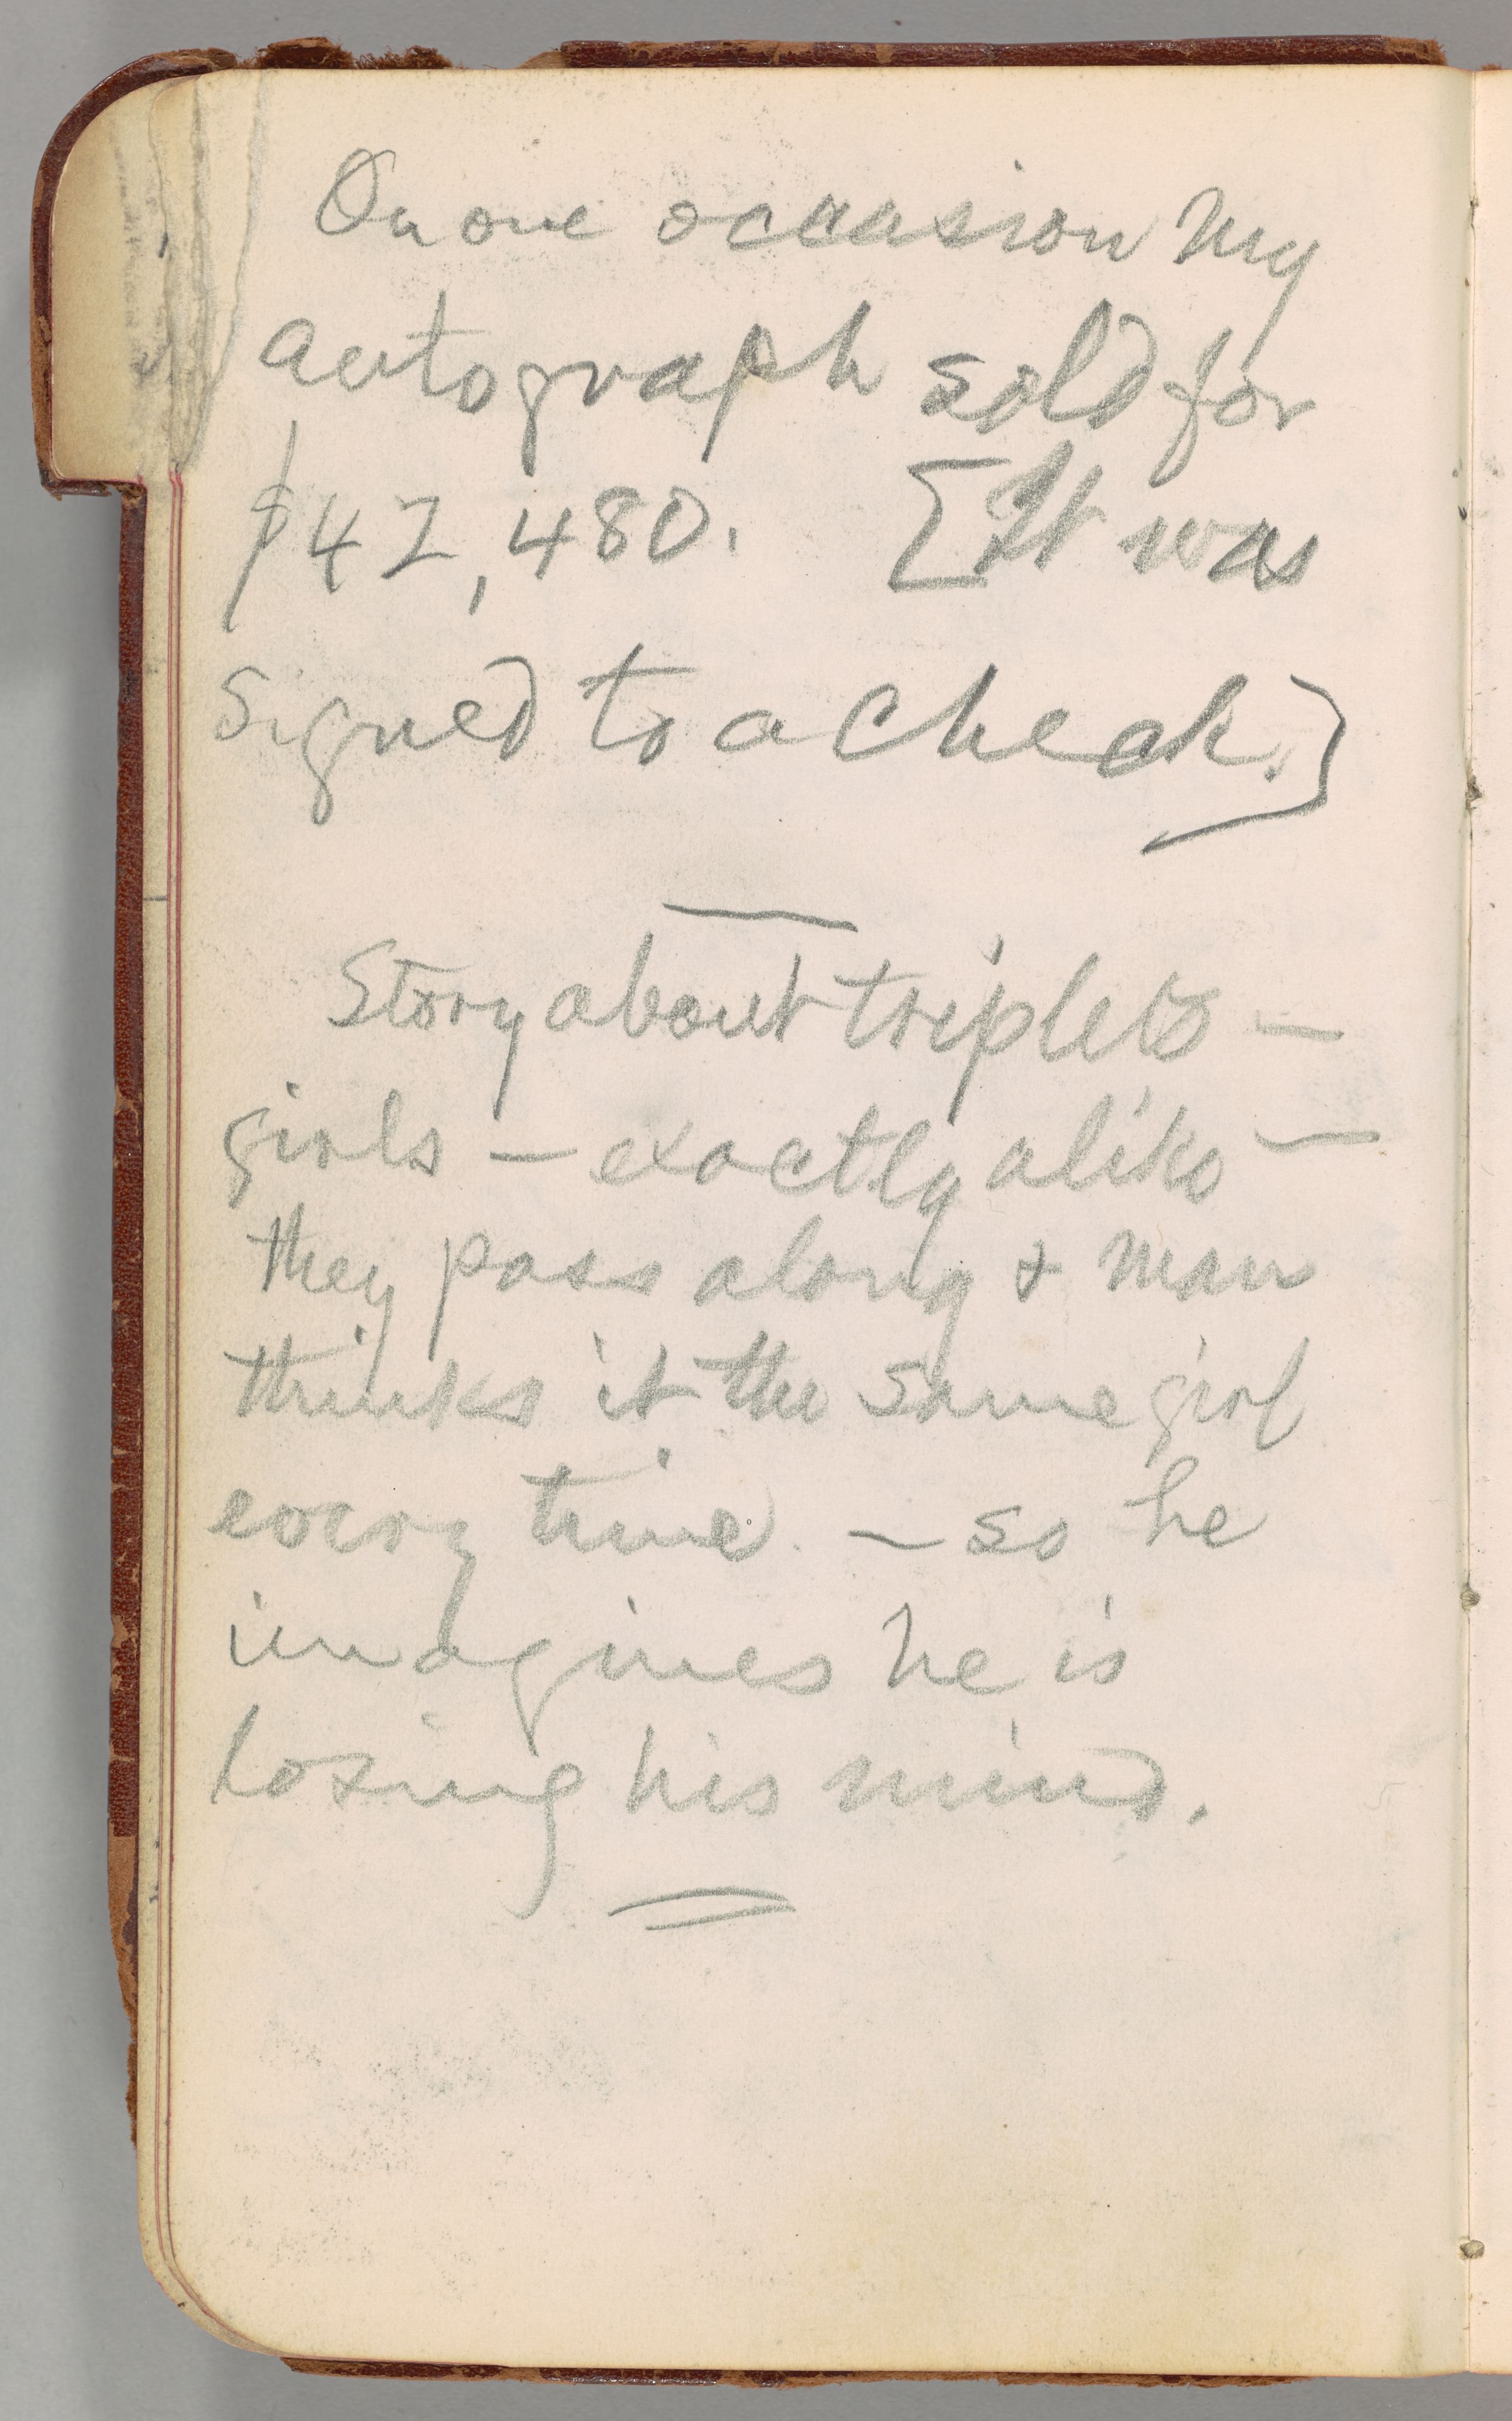 On one occasion my
autograph sold for
$47,480. [It was
signed to a check.]
Story about triplets —
girls — exactly alike —
they pass along & man
thinks it the same girl
every time — so he
imagines he is
losing his mind.